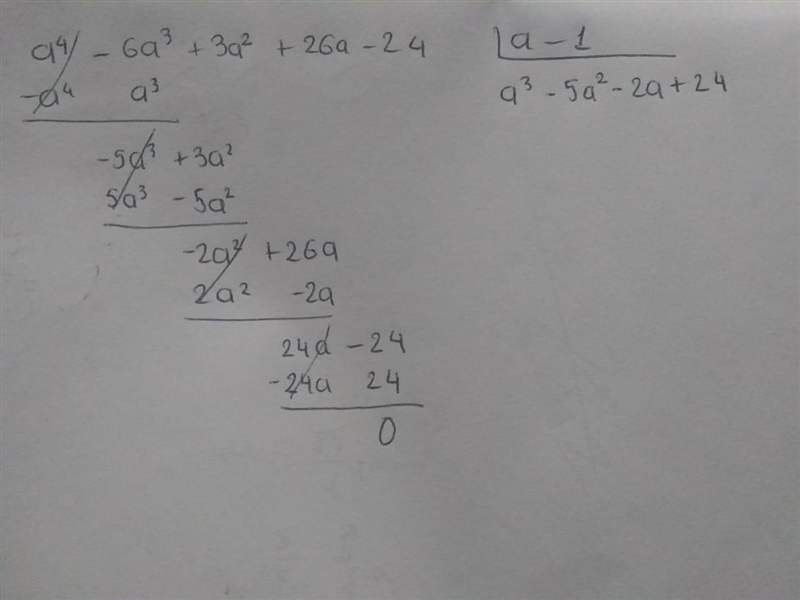 a⁴ - 6a³ + 3a² + 26a - 24 | a - 1
-a⁴ a³ a³ - 5a² - 2a + 24
-5a³ + 3a²
5a³ - 5a²
-2a² + 26a
2a² - 2a
24a - 24
-24a 24
0